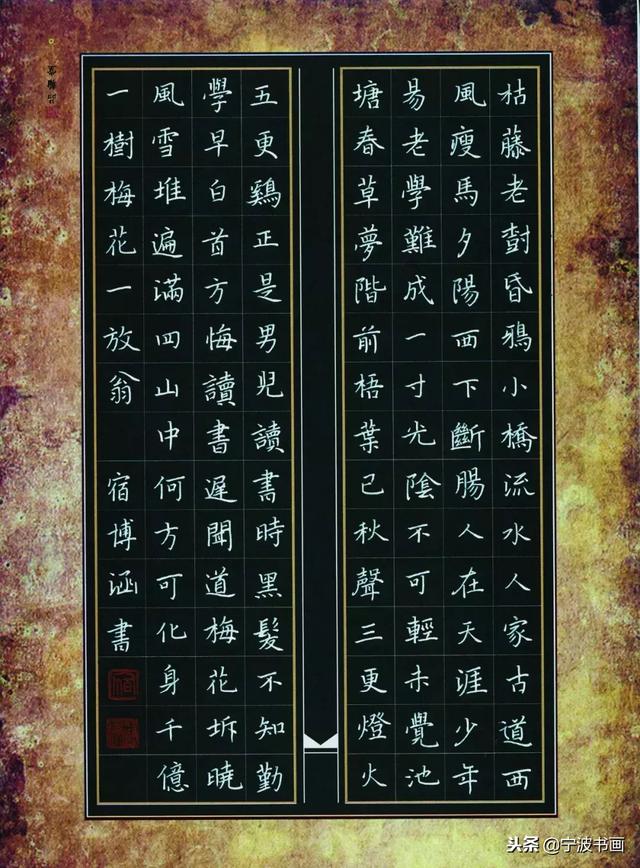 枯藤老樹昏鴉小橋流水人家古道西
風瘦馬夕陽西下斷腸人在天涯少年
易老學難成一寸光陰不可輕未覺池
塘春草夢階前梧葉已秋聲三更燈火
五更鷄正是男兒讀書時黑髮不知勤
學早白首方悔讀書遲聞道梅花坼曉
風雪堆遍滿四山中何方可化身千億
一樹梅花一放翁 宿博涵書
头条 @宁波书画